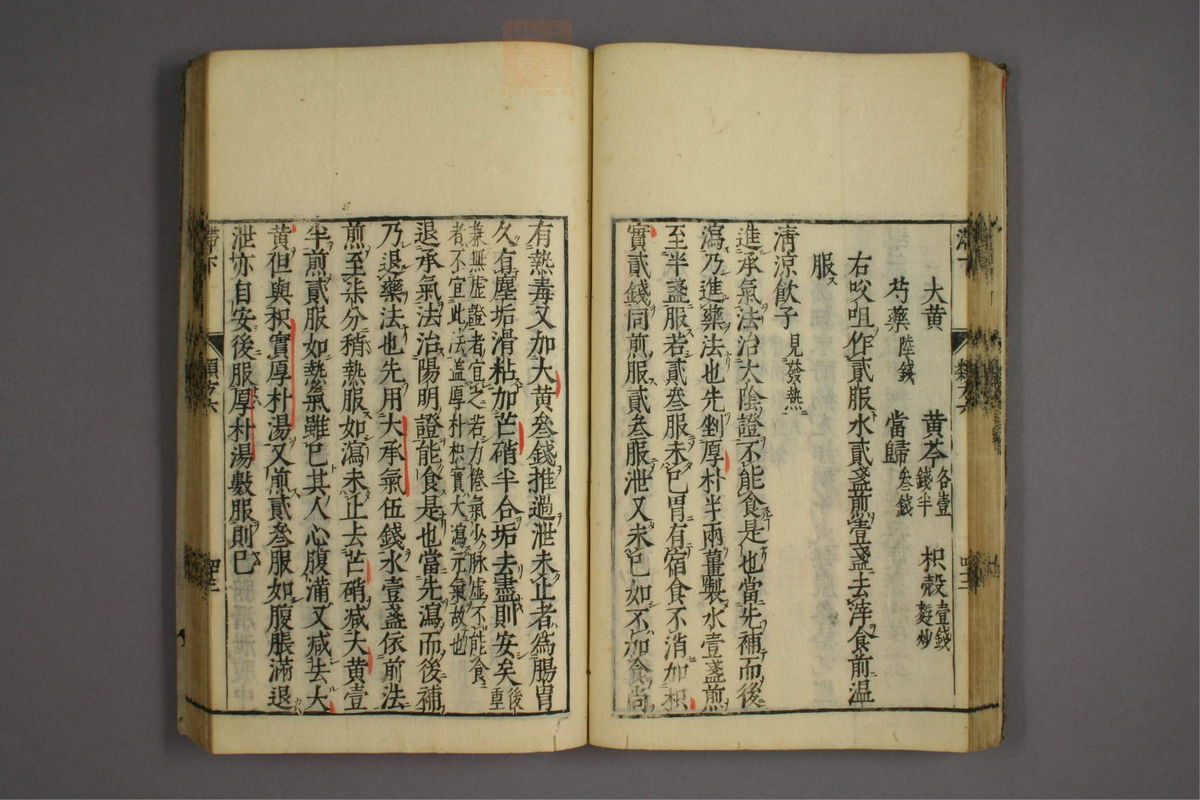 大黄 黄芩各壹錢半 枳殻壹錢麩炒
芍藥陸錢 當歸叁錢
右㕮咀作貳服水貳盞煎壹盞去滓食前温
服
清涼飲子見發熱
進承氣法治太陰證不能食是也當先補而後
瀉乃進藥法也先剉厚朴半兩薑製水壹盞煎
至半盞服若貳叁服未已胃有宿食不消加枳
實貳錢同煎服貳叁服泄又未已如不加食尚
有熱毒又加大黄叁錢推過泄未止者爲腸胃
久有塵垢滑粘加芒硝半合垢去盡則安矣後重
兼無虚證者宜之若力倦氣少脉虚不能食
者不宜此法蓋厚朴枳實大瀉元氣故也
退承氣法治陽明證能食是也當先瀉而後補
乃退藥法也先用大承氣伍錢水壹盞依前法
煎至柒分稍熱服如瀉未止去芒硝减大黄壹
半煎貳服如熱氣雖已其人心腹滿又减去大
黄但與枳實厚朴湯又煎貳叁服如腹脹滿退
泄亦自安後服厚朴湯數服則已